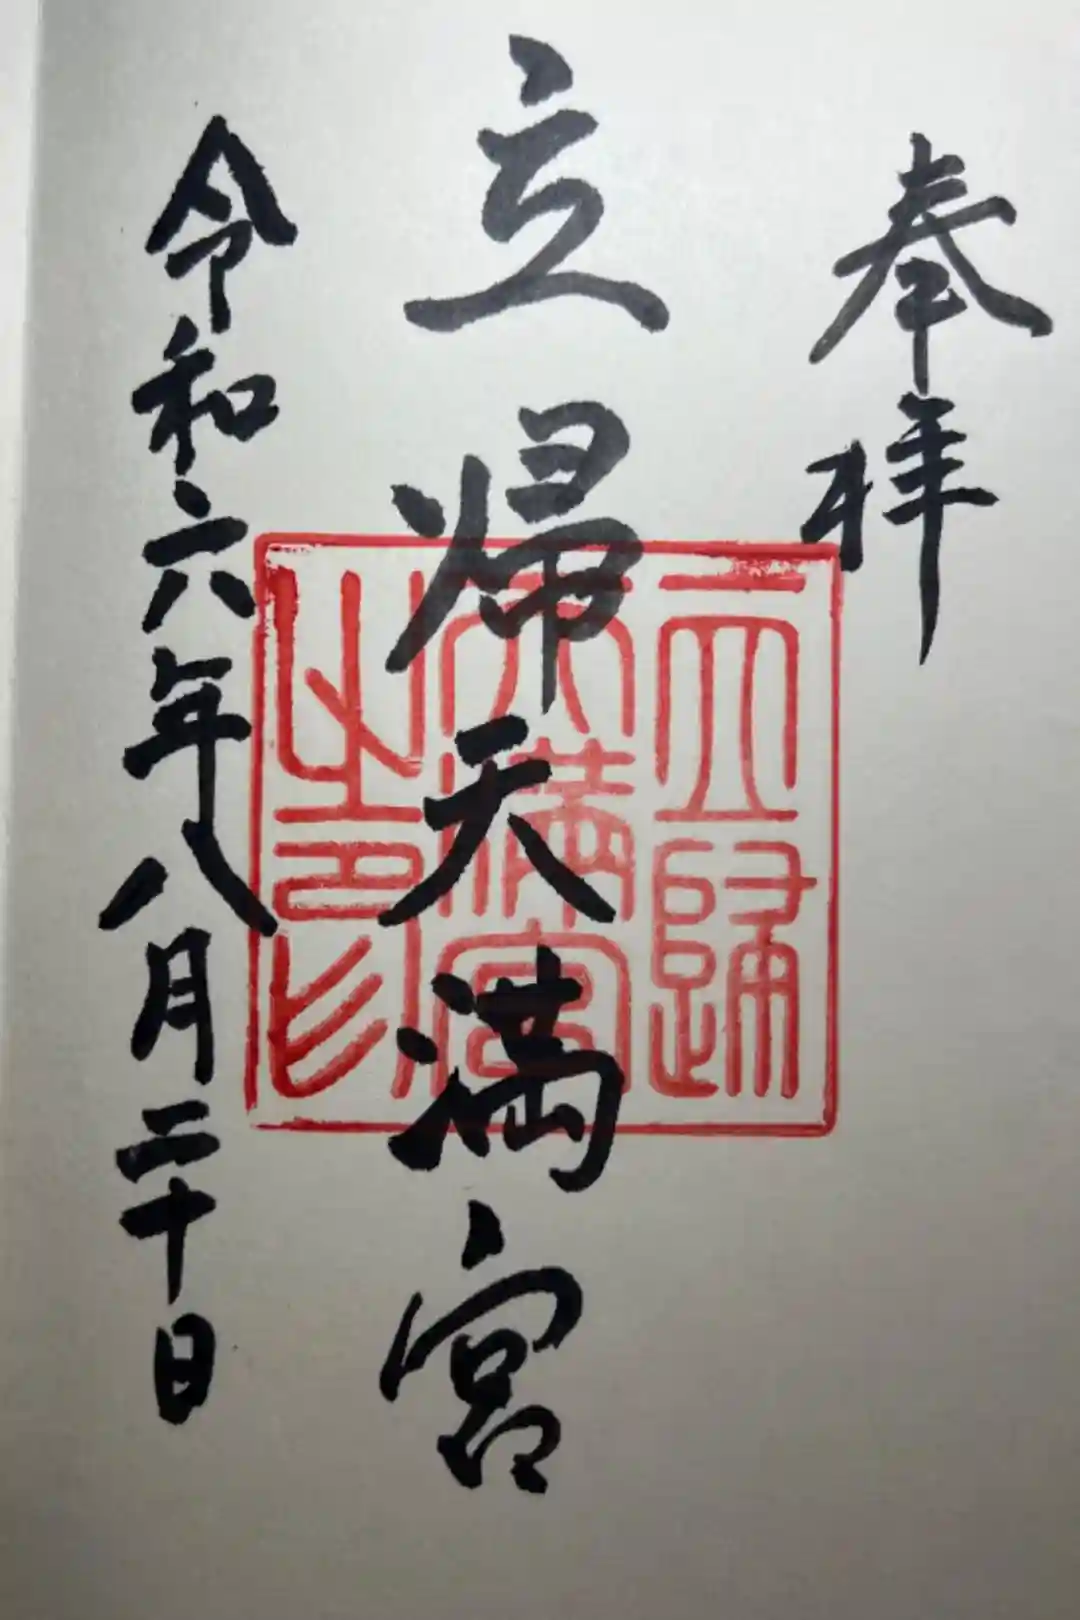 奉拝
立帰天満宮
令和六年八月二十日
立歸
天滿宮
之印